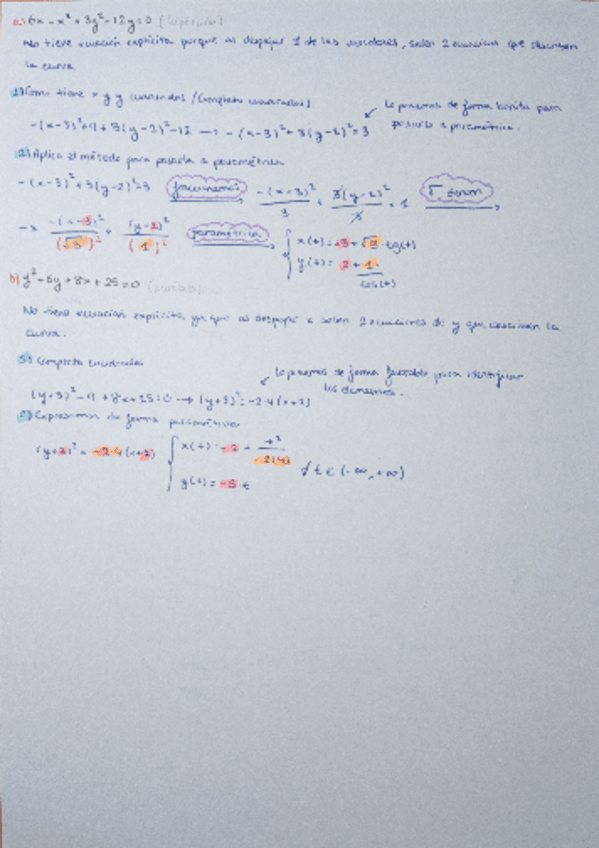 a) 6x - x² + 3y² - 12y = 0 (hipérbola)
No tiene ecuación explícita porque al despejar 1 de las variables, salen 2 ecuaciones que describen
la curva
1) Como tiene x y y cuadrados / Completa cuadrados)
-(x-3)²+9+3(y-2)²-12 → -(x-3)²+3(y-2)²=3
lo ponemos de forma bonita para
pasarla a paramétrica.
2) Aplica el método para pasarla a paramétrica
-(x-3)²+3(y-2)²=3 -(x-3)²/3 + 3(y-2)²/3 = 1
→ -(x-3)²/(√3)² + (y-2)²/(1)² paramétrica { x(t) = +3+√3·tg(t)
y(t) = 2 + 1/cos(t)
b) y² - 6y + 8x + 25 = 0
No tiene ecuación explícita ya que al despejar salen 2 ecuaciones de y que describen la
curva.
Completa cuadrados
(y+3)² - 9 + 8x + 25 = 0 → (y+3)² = -2·4(x+2)
lo ponemos de forma favorable para identificar
los elementos.
2) Expresamos de forma paramétrica
(y+3)² = -2·4(x+2) { x(t) = -2 + t²/-2(4)
y(t) = -3 t
∀ t ∈ (-∞, +∞)